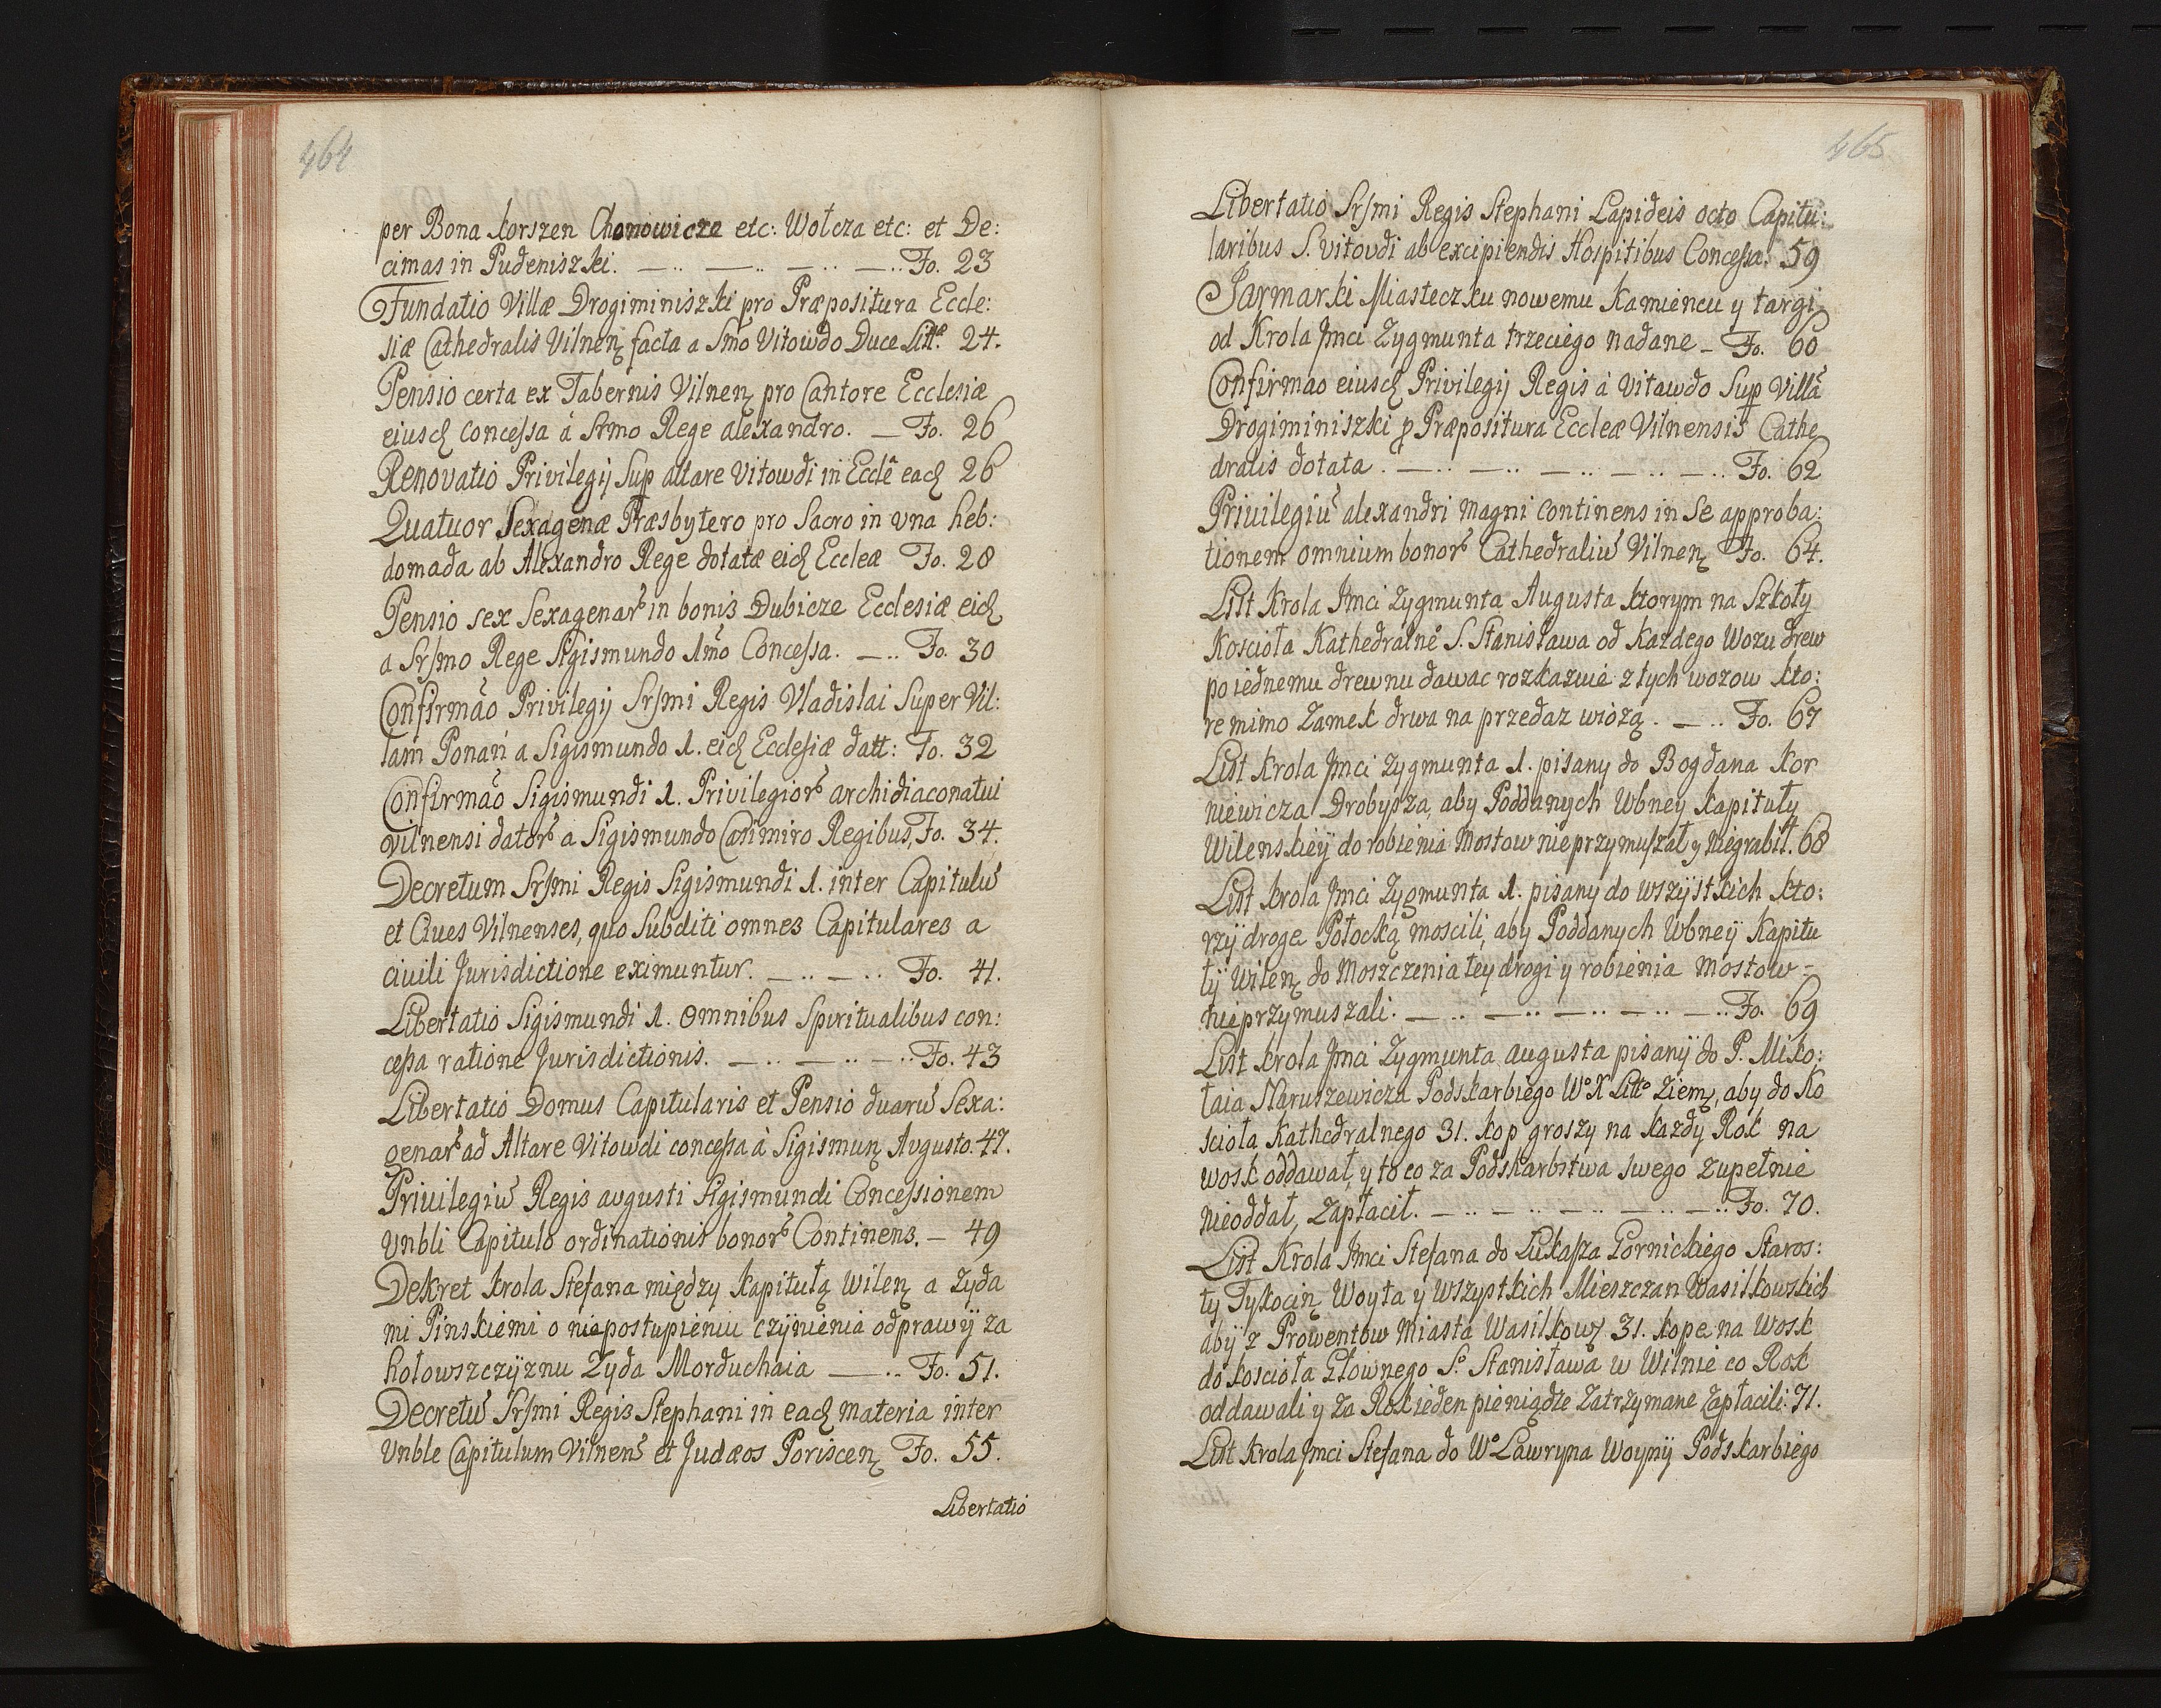 464
per Bona korszen Chonowicze etc: Wolcza etc: et De:
cimas in Pudeniszki. — .. — .. — .. — .. Fo. 23
Fundatio Villæ Drogiminiszki pro Præpositura Eccle:
siæ Cathedralis Vilneñ facta a Smo Vitowdo Duce Littæ. 24.
Pensio certa ex Tabernis Vilneñ pro Cantore Ecclesiæ
eiusd concessa á Srmo Rege alexandro. — Fo. 26
Renovatio Privilegij Sup altare Vitowdi in Ecclâ ead 26
Quatuor Sexagenæ Præsbytero pro Sacro in vna heb:
domada ab Alexandro Rege dotatæ eid Eccleæ Fo. 28
Pensio sex Sexagenar in bonis Dubicze Ecclesiæ eid
a Srſmo Rege Sigismundo 1mo Concessa. — .. Fo. 30
Confirmão Privilegij Srſmi Regis Vladislai Super Vil:
lam Ponari a Sigismundo 1. eid Ecclesiæ datt: Fo. 32
Confirmão Sigismundi 1. Privilegior archidiaconatui
vilnensi dator a Sigismundo Casimiro Regibus, Fo. 34.
Decretum Srſmi Regis Sigismundi 1. inter Capitulū
et Ciues Vilnenses, quo Subditi omnes Capitulares a
ciuili Jurisdictione eximuntur. — .. — .. Fo. 41.
Libertatio Sigismundi 1. omnibus Spiritualibus con:
cessa ratione Jurisdictionis. — .. — .. — .. Fo. 43
Libertatio Domus Capitularis et Pensio duarū Sexa:
genar ad Altare Vitowdi concessa à Sigismuñ Avgusto. 47.
Privilegiū Regis avgusti Sigismundi Concessionem
Vnbli Capitulo ordinationis bonor Continens. — 49
Dekret krola Stefana między kapitułą Wileñ a Zyda
mi Pinskiemi o niepostupieniu czÿnienia odprawÿ za
hołowszczÿznu Zyda Morduchaia — .. Fo. 51.
Decretū Srſmi Regis Stephani in ead materia inter
Vnble Capitulum Vilnens et Judæos Porisceñ Fo. 55.
Libertatio
465
Libertatio Srſmi Regis Stephani Lapideis octo Capitu:
laribus S. vitovdi ab excipiendis Hospitibus Concessa. 59
Jarmarki Miasteczku nowemu Kamiencu y targi
od Krola Jmci Zygmunta trzeciego nadane — Fo. 60
Confirmao eiusd Privilegij Regis à Vitawdo Sup Villā
Drogiminiszki p Præpositura Eccleæ Vilnensis Cathe
dralis dotata. — .. — .. — .. — .. — .. Fo. 62
Priuilegiū alexandri magni continens in se approba:
tionem omnium bonor Cathedraliū Vilneñ Fo. 64.
List Krola Jmci Zygmunta Augusta ktorym na Szkoły
Koscioła Kathedralneo S. Stanisława od kazdego Wozu drew
po iednemu drewnu dawac rozkazuie z tych wozow kto:
re mimo Zamek drwa na przedaz wiozą. — .. Fo. 67
List krola Jmci Zygmunta 1. pisany do Bogdana kor
niewicza Drobysza, aby Poddanych Wbney kapituły
Wilenskieÿ do robienia Mostow nieprzymuszał y niegrabił. 68
List krola Jmci Zygmunta 1. pisany do wszÿstkich kto:
rzÿ droge Połocką moscili, aby Poddanych Wbneÿ Kapitu
łÿ Wileñ do Moszczenia tey drogi y robienia mostow =
nieprzymuszali. — .. — .. — .. — .. — .. Fo. 69
List krola Jmci Zygmunta augusta pisanÿ do P. Miko:
łaia Naruszewicza Podskarbiego Wo X Litto Ziem, aby do Ko
scioła Kathedralnego 31. kop groszy na kazdy Rok na
wosk oddawał, y to co za Podskarbstwa swego zupełnie
nieoddał, Zapłacił. — .. — .. — .. — .. — .. Fo. 70.
List Krola Jmci Stefana do Łukasza Gornickiego Staros:
ty Tykociñ Woyta y Wszystkich Mieszczan Wasilkowskich
abÿ z Prowentow Miasta Wasilkow 31. kope na Wosk
do koscioła Głownego So Stanisława w Wilnie co Rok
oddawali y za Rok ieden pieniądze Zatrzymane Zapłacili. 71.
List krola Jmci Stefana do Wo Lawryna Woynÿ Podskarbiego